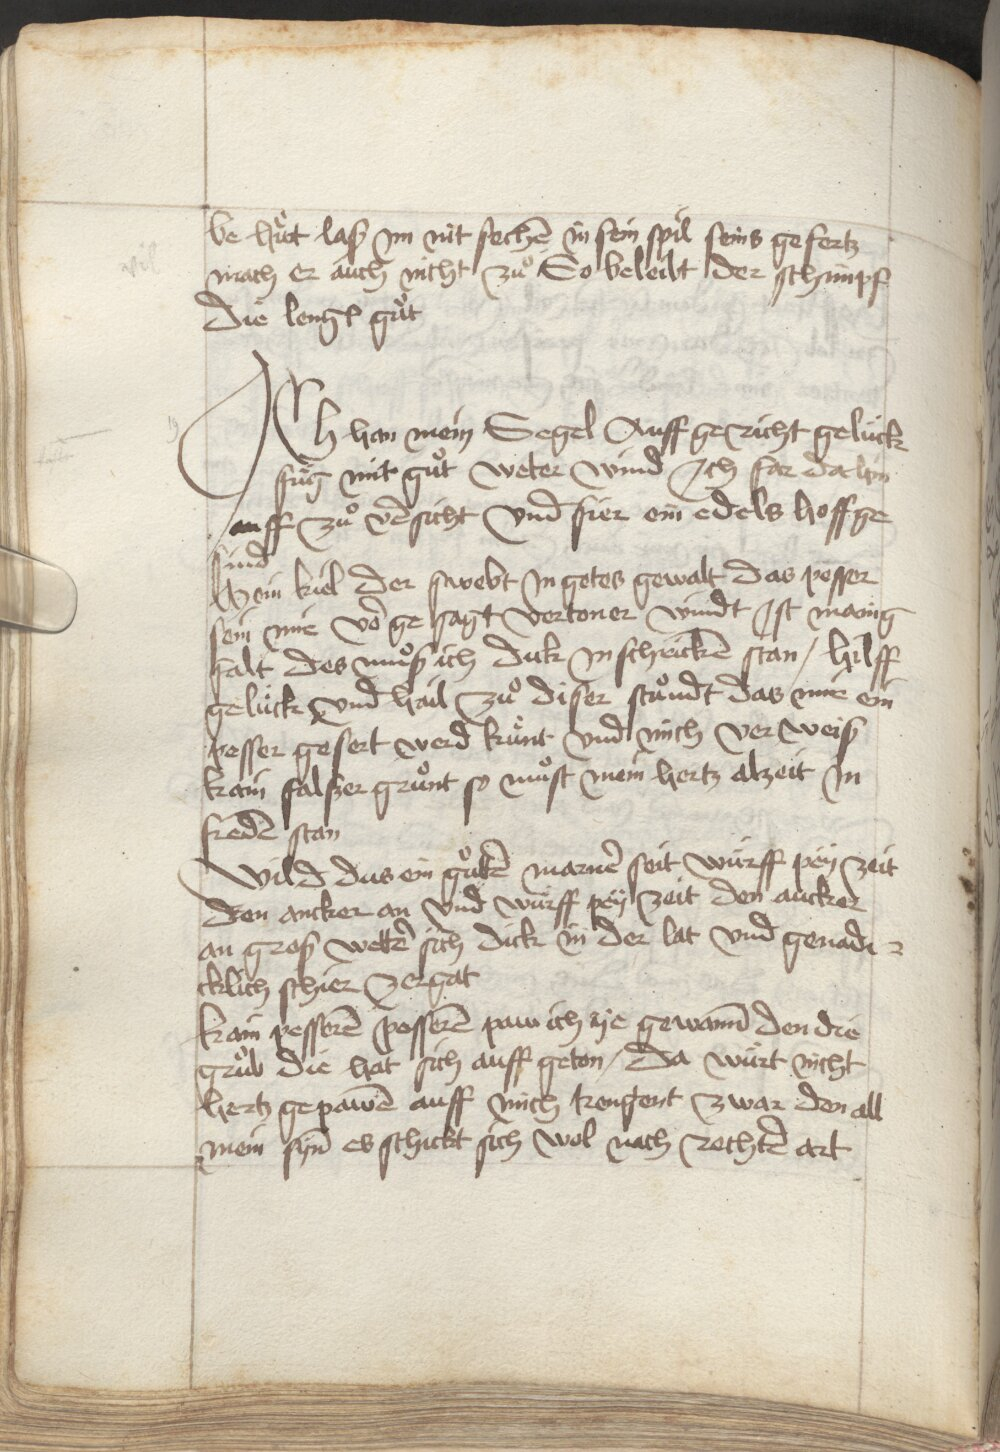 be hüt laß im nit sechē in sein spil seins gefertz
mach er auch nicht zuͦ So beleibt der schimpf
die leng guͦt
Ich han mein Segel Auff gericht gelück
füg mit guͦt weter wind Ich far da hin
auff zuͦ vˀsicht Vnd fier ein edels hoffge
sind
Mein kiel der swebt In gotes gewalt das pesser
sein nie vō ge sagt vertoner windt Ist manig
falt des muͦß ich dick In schricken stan / hilff
gelück Vnd hail zuͦ diser stuͦndt das nie ein
pesser gefert werd kuͦnt Vnd mich Ver weiß
kain falscher gruͦnt so muͦst mein hertz alzeit In
fredē stan
Wild dus ein guͦtē marnˀ seit würff peÿ zeit
den ancker an Vnd würff peÿ zeit den ancker
an groß wetˀ sich dick in der lat Vnd genadi
cklich schier zergat
kain pesserē pesserē paw ich ÿe gewann̄ den die
gruͦb die hat sich auff geton / Da würt nicht
hertz gepawē auff mich zwar den all
mein syn̄ es schickt sich wol nach rechtˀ art